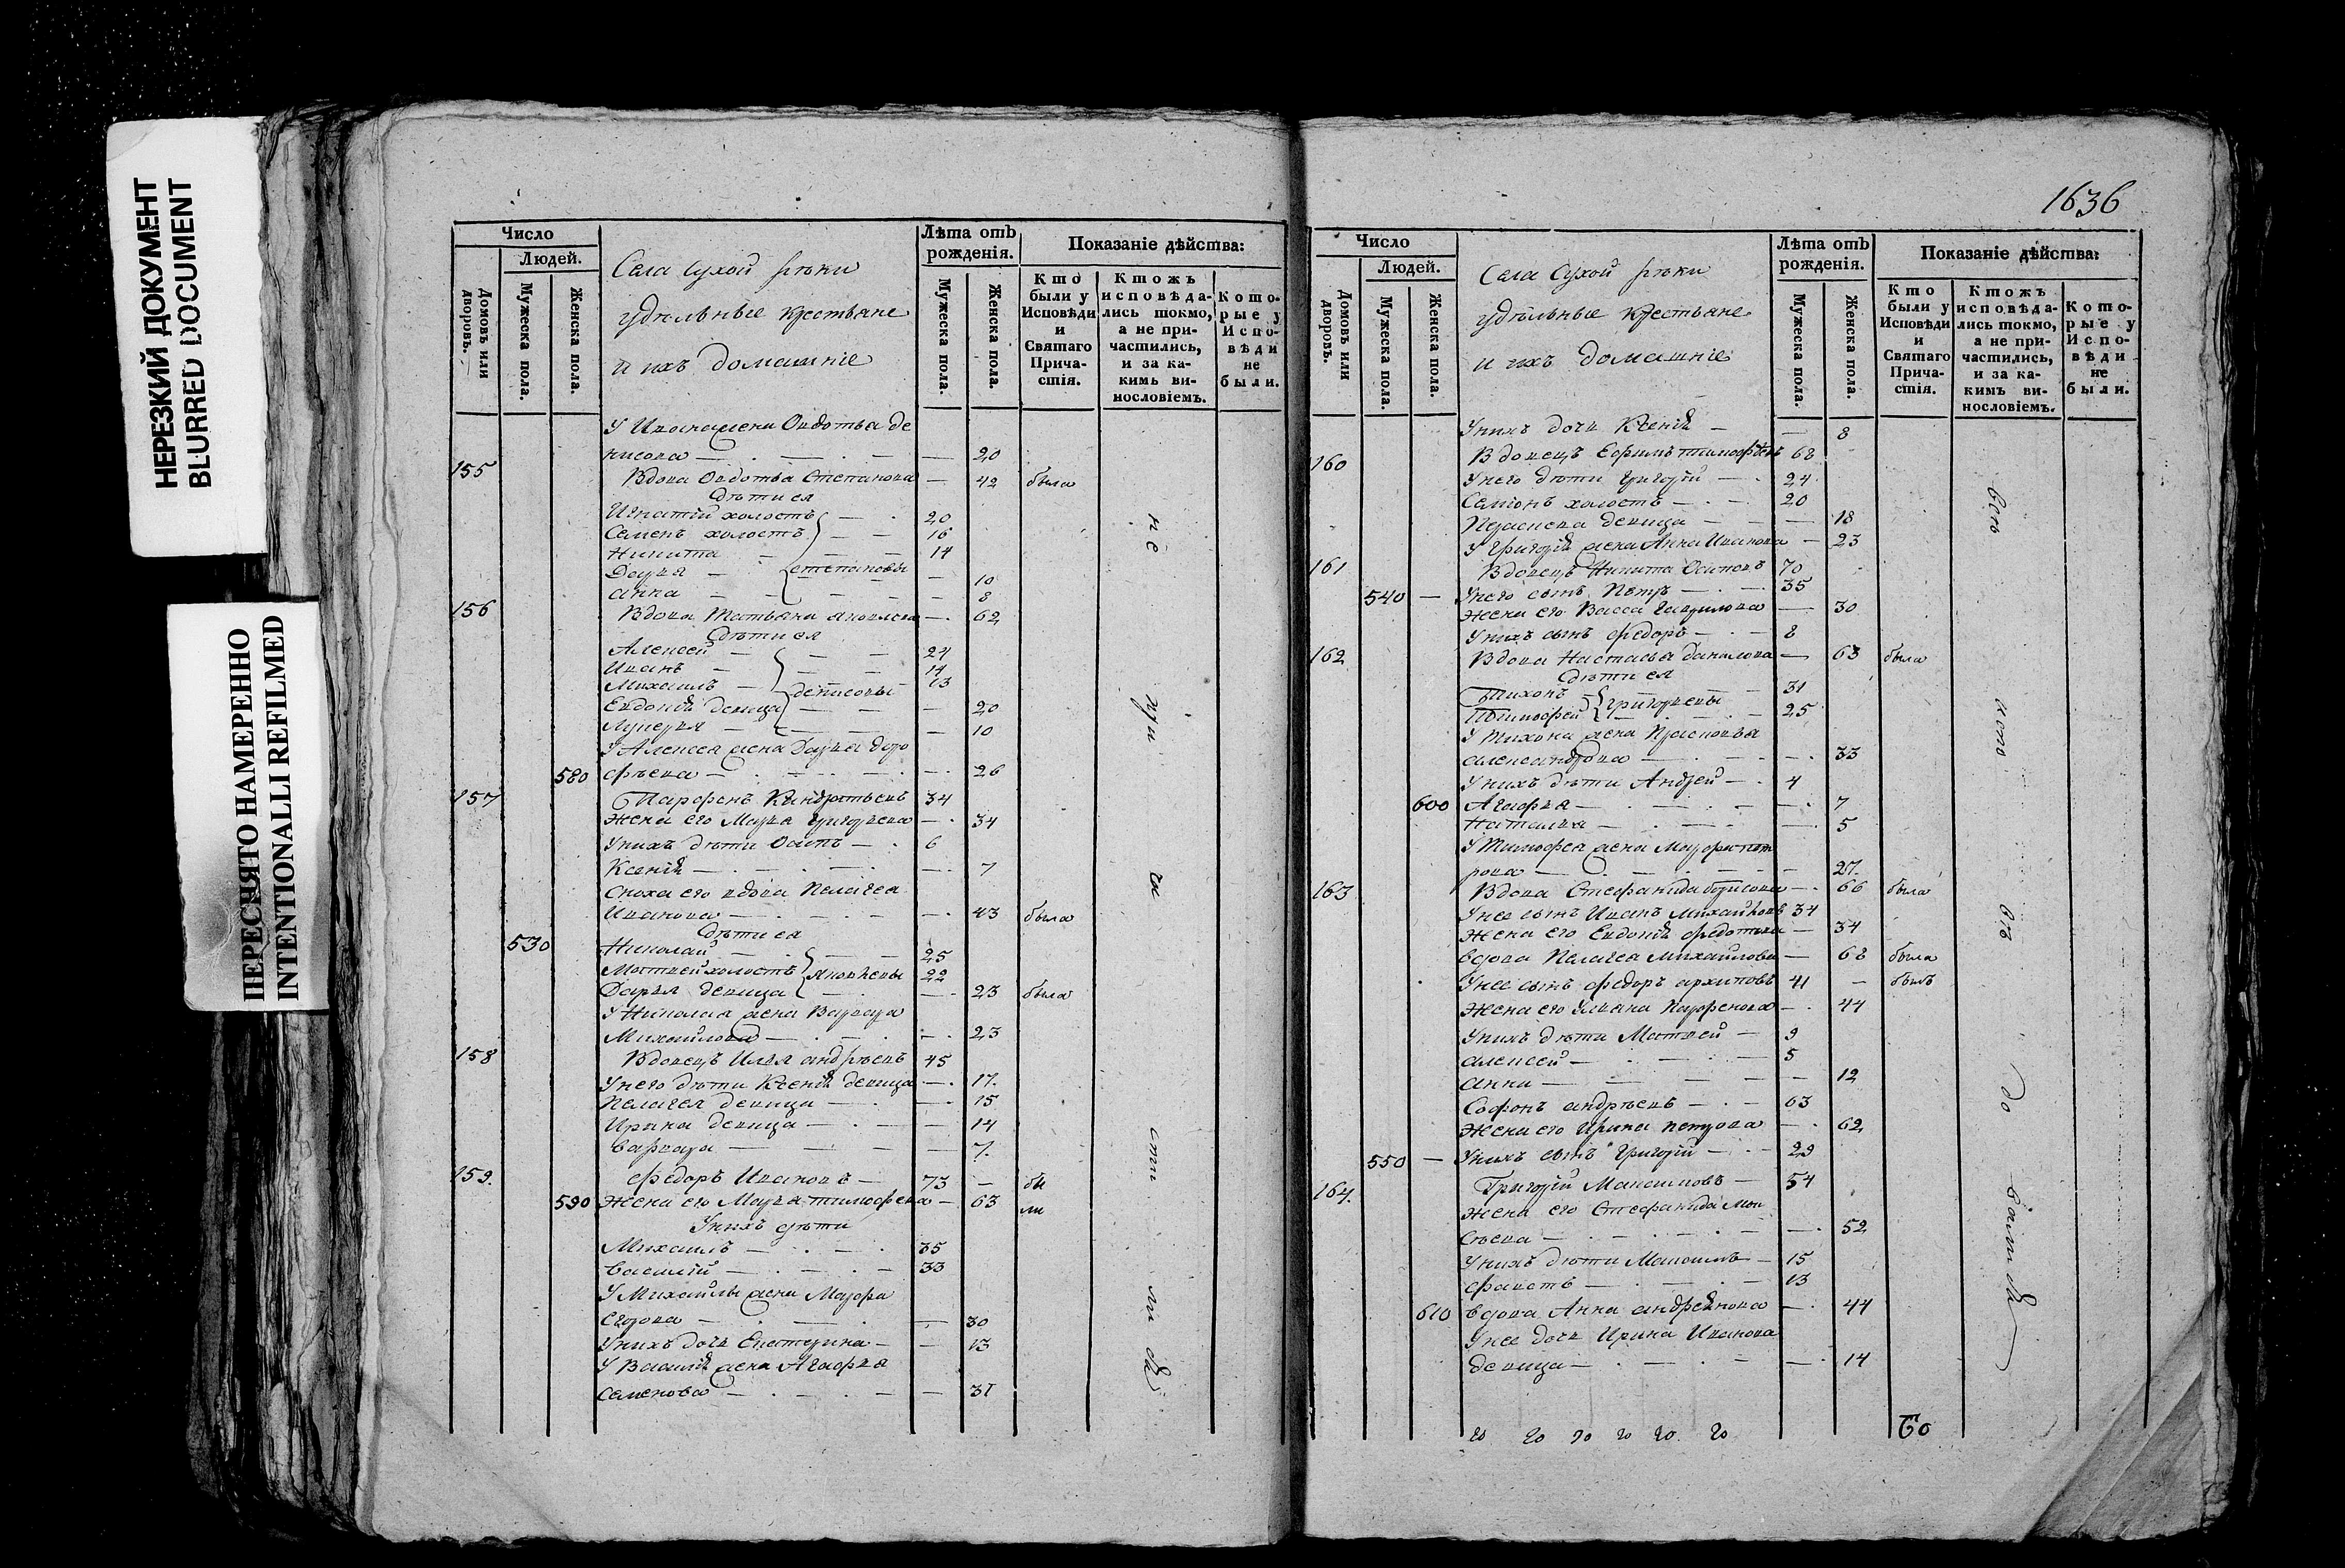 НЕРЕЗКИЙ ДОКУМЕНТ
BLURRED DOCUMENT
ПЕРЕСНЯТО НАМЕРЕННО
INTENTIONALLI REFILMED
Число
Людей.
Домовъ или дворовъ.
Мужеска пола.
Женска пола.
Села Сухой рѣки
удѣльные крестьяне
и ихъ домашніе
Лѣта отъ рожденія.
Мужеска пола.
Женска пола.
Показаніе дѣйства:
Кто были у Исповѣди и Святаго Причастія.
Ктожъ исповѣдались токмо, а не причастились, и за какимъ винословіемъ.
Которые у Исповѣди не были.
У Ивана жена Овдотья де
нисова — 20
155 Вдова Овдотья Степанова — 42 была
Дѣти ея
Игнатій холостъ — 20
Семенъ холостъ — 16
Никита — 14
Дарья — Степановы — 10
Анна — 8
156 Вдова Татьяна Яковлева — 62
Дѣти ея
Алексей — 24
Иванъ — 14
Михаилъ — Денисовы 13
Евдокія девица — 20
Лукерья — 10
У Алексея жена Дарья доро
580 фѣева — 26
157 Парфенъ Кондратьевъ 34
Жена его Марья Григорьева — 34
У нихъ дѣти Осипъ — 6
Ксенія — 7
Сноха его вдова Пелагея
Иванова — 43 была
Дѣти ея
530 Николай — 25
Матвей холостъ Яковлевы 22
Дарья девица — 23 была
У Николая жена Варвара
Михайлова — 23
158 Вдовецъ Илья Андрѣевъ 45
У него дѣти Ксенія девица — 17
Пелагея девица — 15
Ирина девица — 14
Варвара — 7
159. Федоръ Ивановъ — 73 — бы
590 Жена его Марья Тимофеева — 63 ли
У нихъ дѣти
Михаилъ — 35
Василій — 33
У Михайлы жена Марфа
Егорова — 30
У нихъ дочь Екатерина — 13
У Василія жена Агафья
Семенова — 31
не при ча сти ли ся
1636
Число
Людей.
Домовъ или дворовъ.
Мужеска пола.
Женска пола.
Села Сухой рѣки
удѣльные крестьяне
и ихъ домашніе
Лѣта отъ рожденія.
Мужеска пола.
Женска пола.
Показаніе дѣйства:
Кто были у Исповѣди и Святаго Причастія.
Ктожъ исповѣдались токмо, а не причастились, и за какимъ винословіемъ.
Которые у Исповѣди не были.
У нихъ дочь Ксенія — 8
160 Вдовецъ Ефимъ Тимофѣевъ 68
У него дѣти Григорій — 24
Семіонъ холостъ — 20
девица — 18
У Григорія жена Анна Иванова — 23
161 Вдовецъ Никита Осиповъ 70
540 — У него сынъ Петръ — 35
Жена его Васса Гаврилова — 30
У нихъ сынъ Федоръ — 8
162 Вдова Настасья Данилова — 63 была
Дѣти ея
Тихонъ Григорьевы — 31
Тимофей — 25
У Тихона жена Прасковья
Александрова — 33
У нихъ дѣти Андрей — 4
600 Агафья — 7
Наталья — 5
У Тимофея жена Марфа пет
рова — 27.
163 Вдова Стефанида Борисова — 66 была
У нее сынъ Иванъ Михайловъ 34
Жена его Евдокія Федотова — 34
Вдова Пелагея Михайлова — 68 была
У нее сынъ Федоръ Архиповъ 41 — былъ
Жена его Ульяна Парфенова — 44
У нихъ дѣти Матвей — 9
Алексей — 5
Анна — 12
Софонъ Андрѣевъ — 63
Жена его Ирина Петрова — 62
550 — У нихъ сынъ Григорій — 29
164. Григорій Максимовъ — 54
Жена его Стефанида Мои
сѣева — 52
У нихъ дѣти Максимъ — 15
13
610 Вдова Анна — 44
У нее дочь Ирина Иванова
девица — 14